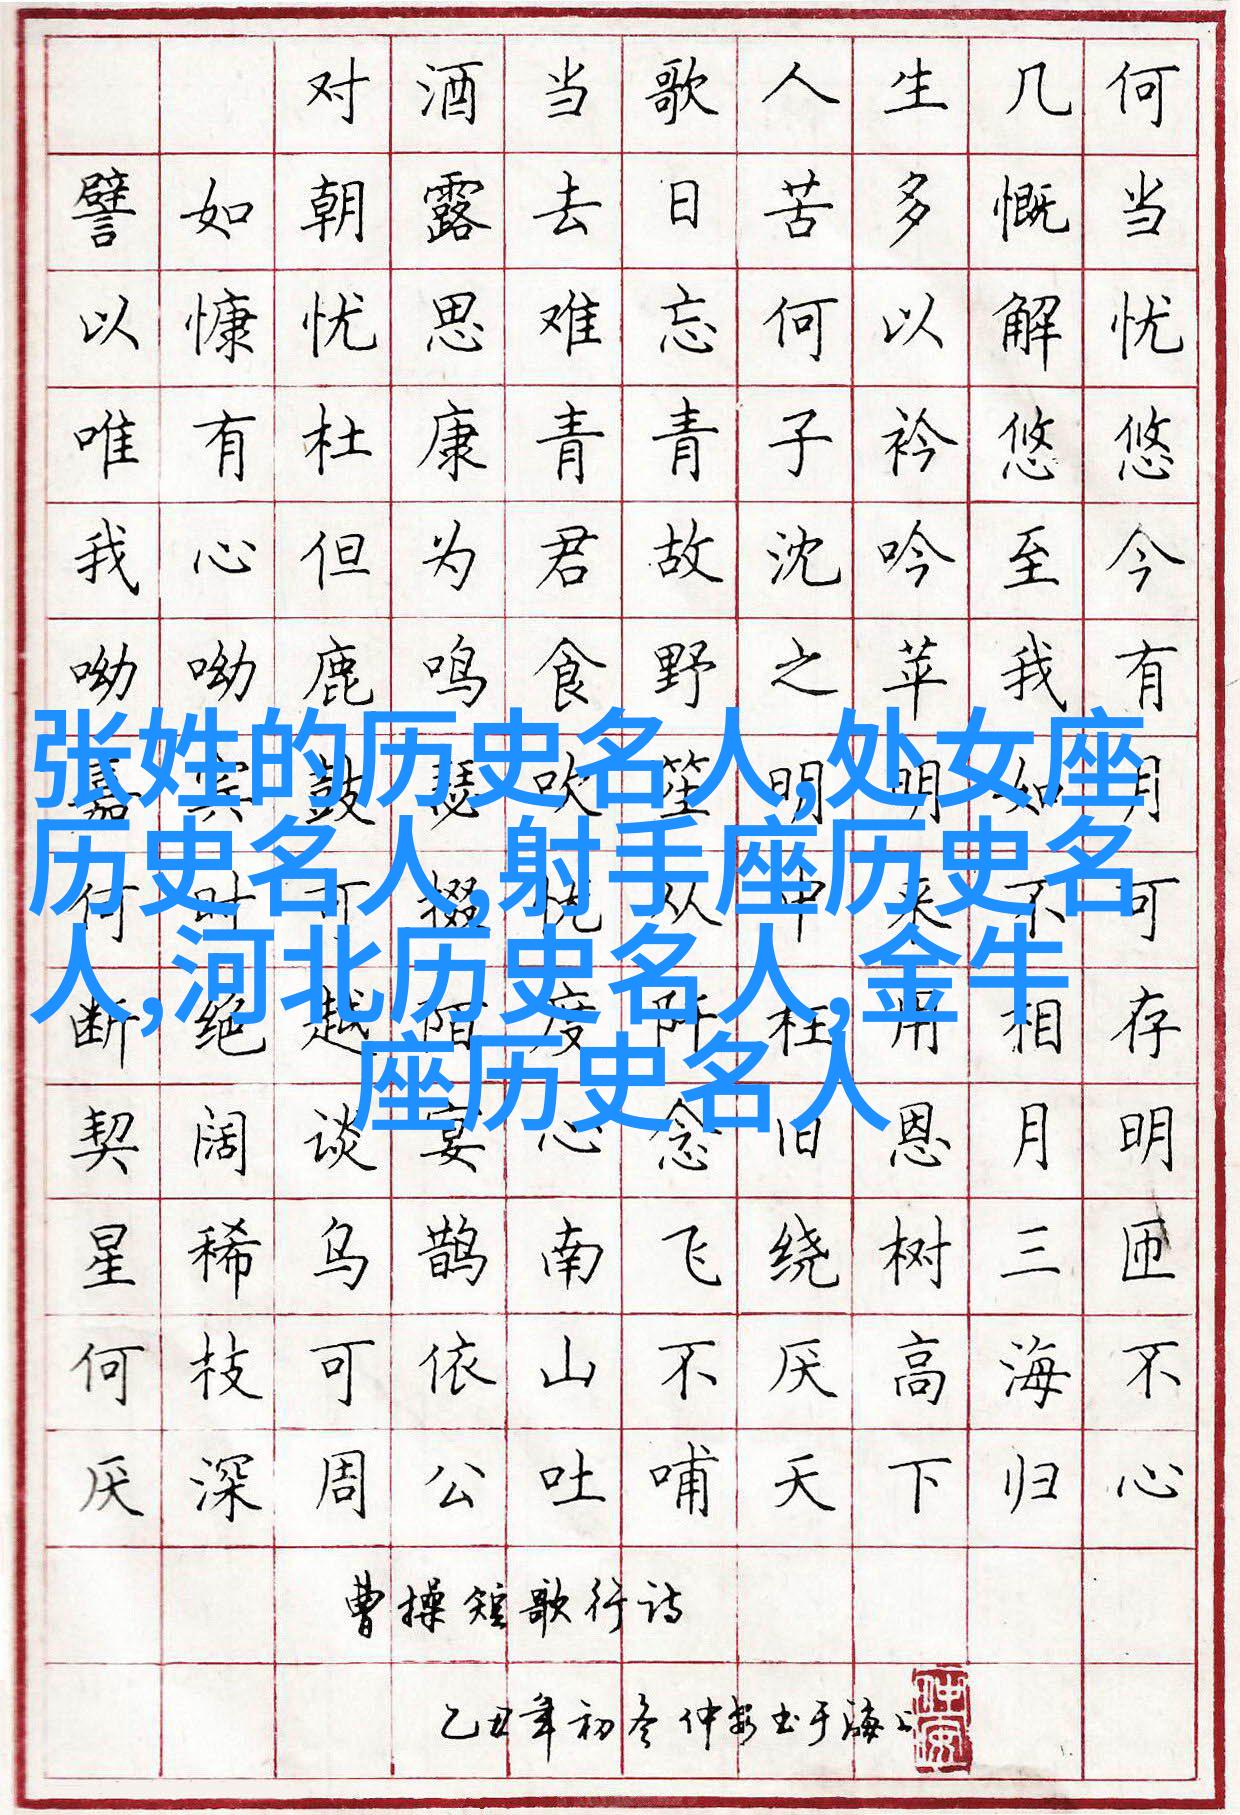 对酒当歌人生几何
譬如朝露去日苦多慨当
以慷忧思难忘何以解忧
唯有杜康青青子衿悠悠
我心但为君故沈吟至今
呦呦鹿鸣食野之苹我有
嘉宾鼓瑟吹笙明明如月
张姓的历史名人,处女座
历史名人,射手座历史名
人,河北历史名人,金牛
座历史名人
何时可掇忧从中来不可
断绝越陌度阡枉用相存
契阔谈宴心念旧恩月明
星稀乌鹊南飞绕树三匝
何枝可依山不厌高海不
厌深周公吐哺天下归心
曹操短歌行诗
乙丑年初冬仲安书于海上
仲安